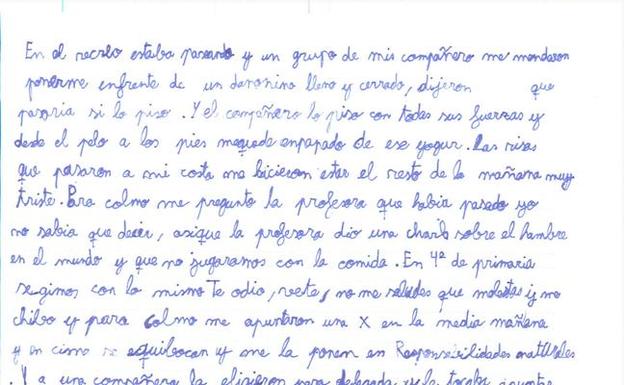 En el recreo estaba paseando y un grupo de mis compañero me mandaron
ponerme enfrente de un danonino lleno y cerrado, dijeron que
pasaria si lo piso. Y el compañero lo piso con todas sus fuerzas y
desde el pelo a los pies mequede enpapado de ese yogur. Las risas
que pasaron a mi costa me hicieron estar el resto de la mañana muy
triste. Para colmo me pregunto la profesora que habia pasado yo
no sabia que decir, asique la profesora dio una charla sobre el hambre
en el mundo y que no jugaramos con la comida. En 4º de primaria
segimos con lo mismo Te odio, vete, no me saludes que molestas y me
chibo y para colmo me apuntaron una X en la media mañana
y en cima se equibocan y me la ponen en Responsabilidades
. Y a una compañera la eligieron para delegada y le tocaba